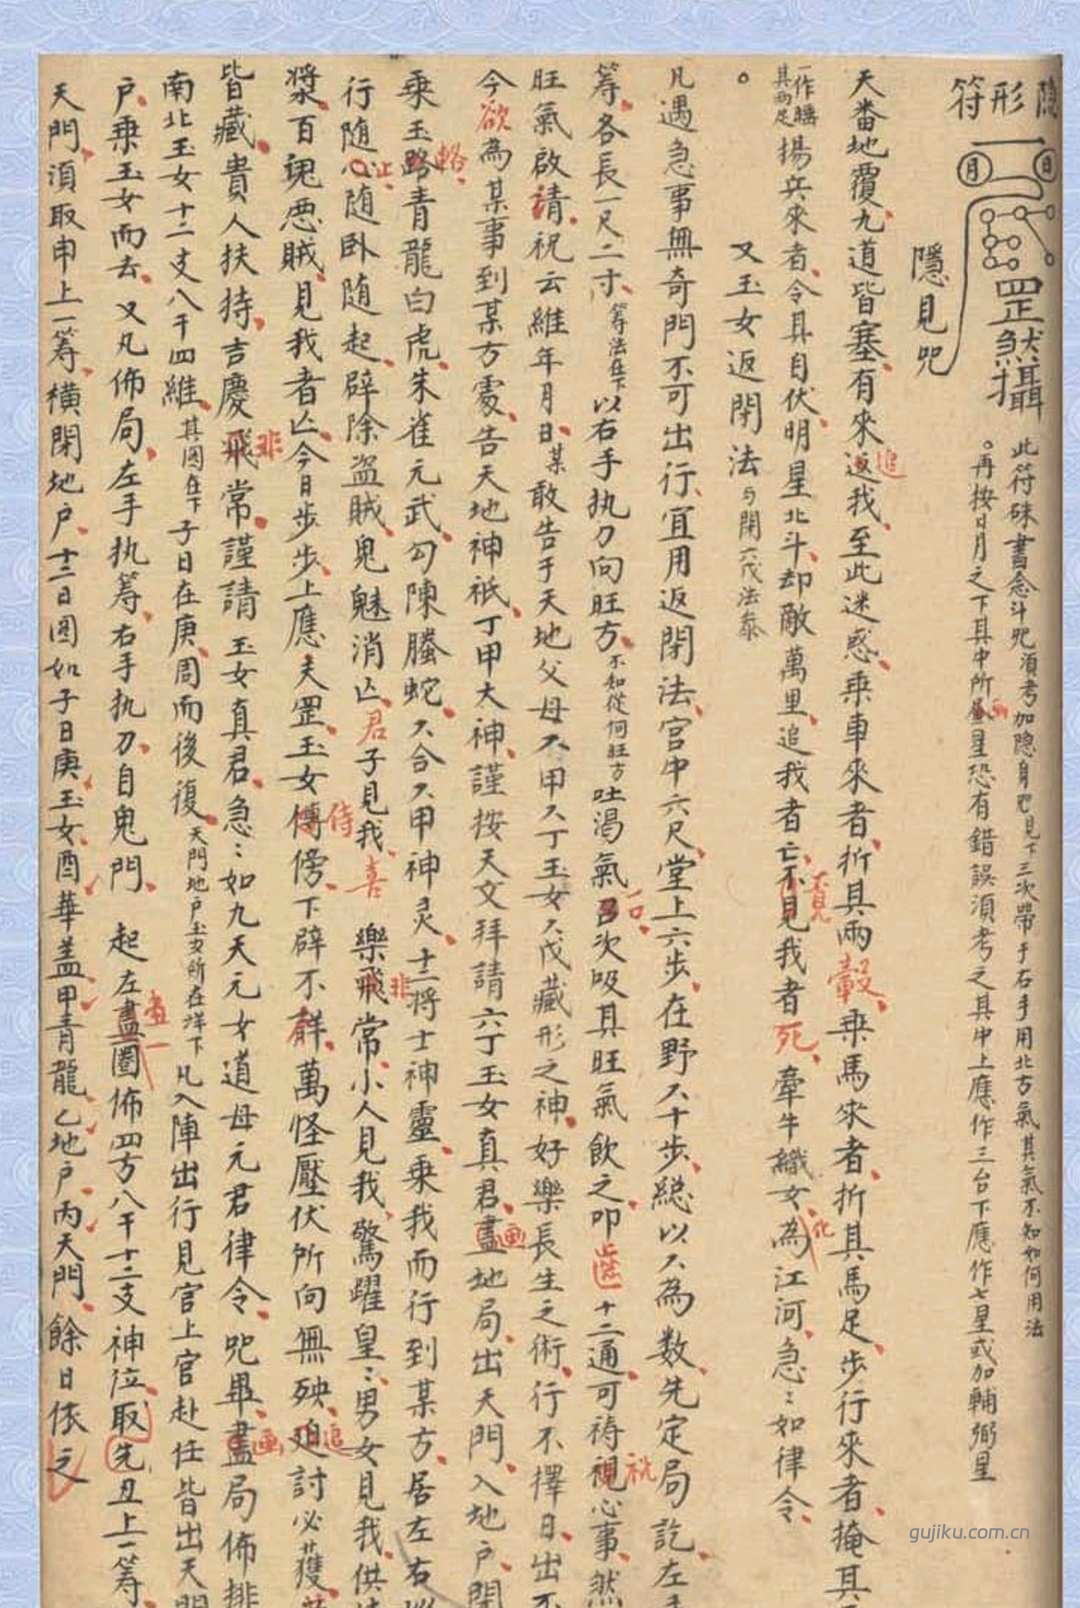 隱形符
日
月
罡煞攝
此符硃書念斗咒須考加隐身咒見下三次帶于右手用北方氣其氣不知如何用法
○再按日月之下其中所畫星恐有錯誤須考之其中上應作三台下應作七星或加輔弼星
隱見咒
天番地覆九道皆塞有來返追我至此迷惑乘車來者折其兩轂乘馬來者折其馬足步行來者掩其
一作腫其兩足揚兵來者令其自伏明星北斗却敵萬里追我者亡不見我者死牽牛織女為化江河急:如律令
○
又玉女返閉法与閉六戊法叅
凡遇急事無奇門不可出行宜用返閉法宫中六尺堂上六步在野六十步総以六為数先定局訖左手
筹各長一尺二寸筹法在下以右手执刀向旺方不知從何旺方吐渴氣吕次吸其旺氣飲之叩齒十二通可祷視祝心事然
旺氣啟請祝云維年月日某敢告于天地父母六甲六丁玉女六戊藏形之神好樂長生之術行不擇日出不
今欲為某事到某方處告天地神祇丁甲大神謹按天文拜請六丁玉女真君盡画地局出天門入地户閉
乘玉路輅青龍白虎朱雀元武勾陳螣蛇六合六甲神灵十二将士神靈乘我而行到某方居左右
行随心止随卧随起辟除盗賊鬼魅消亡君子見我喜樂飛非常小人見我驚躍皇:男女見我供
漿百鬼恶賊見我者亡今日步步上應天罡玉女傅侍傍下辟不祥萬怪壓伏所向無殃迫追討必獲
皆藏貴人扶持吉慶飛非常謹請玉女真君急:如九天元女道母元君律令咒畢盡画局佈排
南北玉女十二支八千四維其圖在下子日在庚周而後復天門地户玉女所在詳下凡入陣出行見官上官赴任皆出天門
户乘玉女而去又凡佈局左手执筹右手执刀自鬼門起左盡畫一圈佈四方八干十二支神位取先丑上一筹
天門湏取申上一筹横閉地户十二日图如子日庚玉女酉華盖甲青龍乙地户丙天門餘日依之
gujiku.com.cn